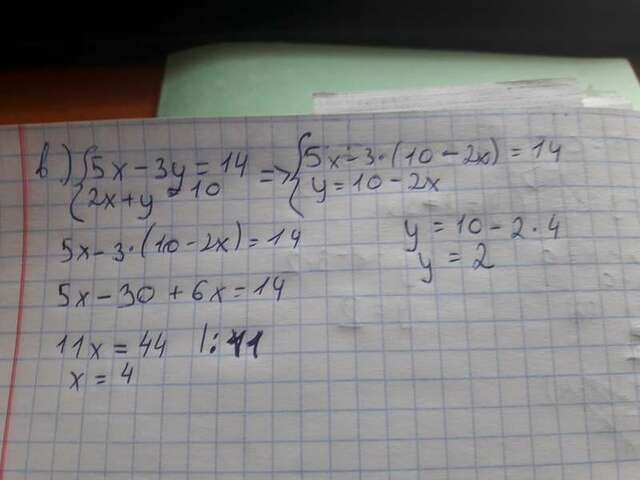 в) {5x - 3y = 14 => {5x - 3·(10 - 2x) = 14
{2x + y = 10 {y = 10 - 2x
5x - 3·(10 - 2x) = 14
5x - 30 + 6x = 14
11x = 44 |: 11
x = 4
y = 10 - 2·4
y = 2